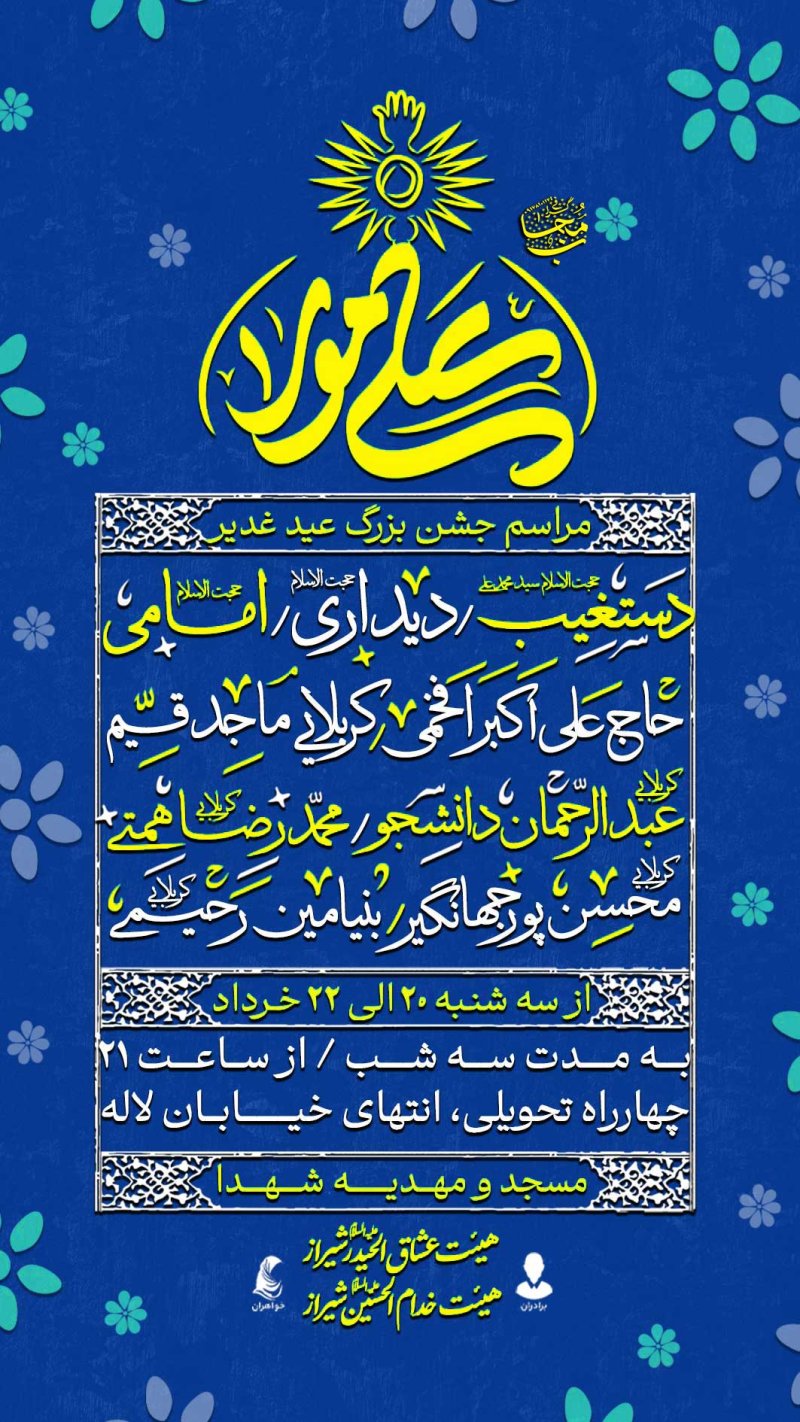 علی مولا
مراسم جشن بزرگ عید غدیر
حجت الاسلام سید محمد علی دستغیب / حجت الاسلام دیداری / حجت الاسلام امامی
حاج علی اکبر افخمی / کربلایی ماجد قیّم
کربلایی عبدالرحمان دانشجو / کربلایی محمّد رضا همتے
کربلایی محسن پورجهانگیر / کربلایی بنیامین رحیمے
از سه شنبه ۲۰ الی ۲۲ خرداد
به مدت سه شب / از ساعت ۲۱
چهارراه تحویلی، انتهای خیابان لاله
مسجد و مهدیه شهدا
هیئت عشاق الحیدر علیه‌السلام شیراز
هیئت خدام الحسین علیه‌السلام شیراز
برادران
خواهران